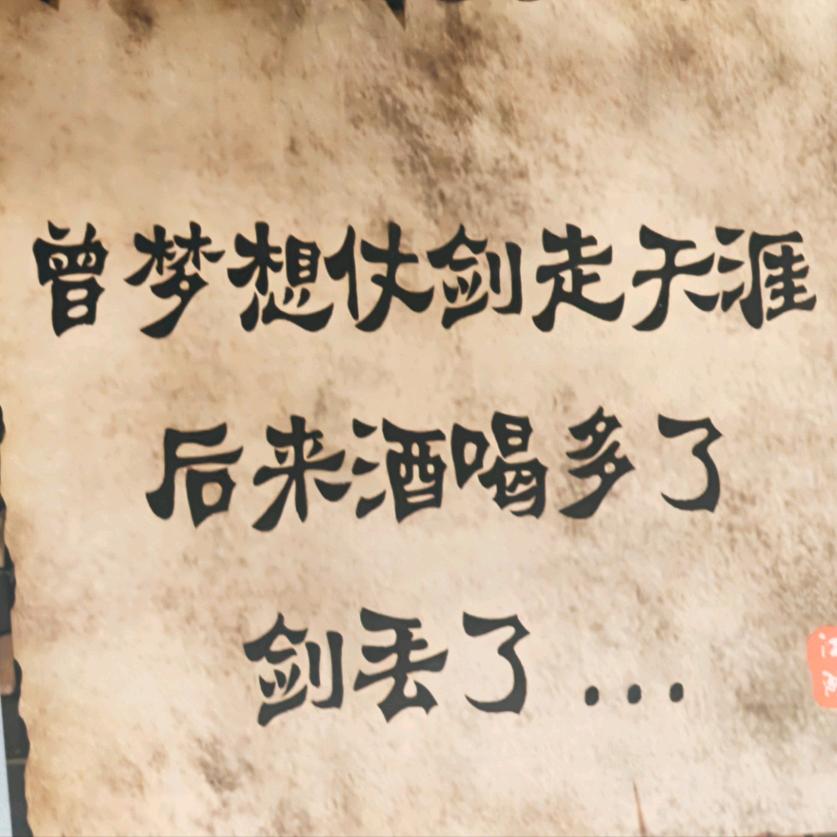 曾梦想仗剑走天涯
后来酒喝多了
剑丢了...